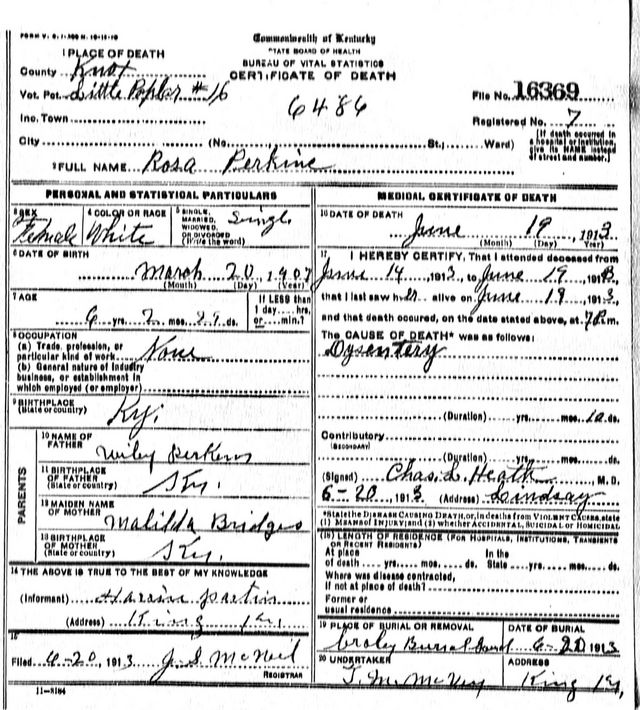 FORM V. S. 1-300 M. 10-15-10
Commonwealth of Kentucky
STATE BOARD OF HEALTH
BUREAU OF VITAL STATISTICS
CERTIFICATE OF DEATH
1 PLACE OF DEATH
County Knox
Vot. Pct. Little Poplar #16
6486
File No. 16369
Inc. Town
Registered No. 7
City (No. St.; Ward)
[If death occurred in a hospital or institution, give its NAME instead of street and number.]
2 FULL NAME Rosa Perkins
PERSONAL AND STATISTICAL PARTICULARS
3 SEX Female
4 COLOR OR RACE White
5 SINGLE, MARRIED, WIDOWED, OR DIVORCED (Write the word) Single
6 DATE OF BIRTH
March 20, 1907
(Month) (Day) (Year)
7 AGE
6 yrs. 2 mos. 29 ds.
If LESS than 1 day ... hrs. or ... min.?
8 OCCUPATION
(a) Trade, profession, or particular kind of work None
(b) General nature of industry business, or establishment in which employed (or employer)
9 BIRTHPLACE (State or country) Ky.
PARENTS
10 NAME OF FATHER Wiley Perkins
11 BIRTHPLACE OF FATHER (State or country) Ky.
12 MAIDEN NAME OF MOTHER Malilda Bridges
13 BIRTHPLACE OF MOTHER (State or country) Ky.
14 THE ABOVE IS TRUE TO THE BEST OF MY KNOWLEDGE
(Informant)
(Address) King Ky.
15
Filed 6-20, 1913 J. S. McNeil
REGISTRAR
11-3184
MEDICAL CERTIFICATE OF DEATH
16 DATE OF DEATH
June 19, 1913
(Month) (Day) (Year)
17 I HEREBY CERTIFY, That I attended deceased from
June 14 1913, to June 19 1913,
that I last saw her alive on June 19 1913,
and that death occured, on the date stated above, at 7 P.m.
The CAUSE OF DEATH* was as follows:
Dysentery
(Duration) yrs. mos. 10 ds.
Contributory
(SECONDARY)
(Duration) yrs. mos. ds.
(Signed) Chas. L. Heath M.D.
6-20 1913 (Address) Lindsay
*State the DISEASE CAUSING DEATH, or, in deaths from VIOLENT CAUSES, state (1) MEANS OF INJURY; and (2) whether ACCIDENTAL, SUICIDAL or HOMICIDAL
18 LENGTH OF RESIDENCE (FOR HOSPITALS, INSTITUTIONS, TRANSIENTS OR RECENT RESIDENTS)
At place of death yrs. mos. ds. In the State yrs. mos. ds.
Where was disease contracted, if not at place of death?
Former or usual residence
19 PLACE OF BURIAL OR REMOVAL
Burial
DATE OF BURIAL
6-20 1913
20 UNDERTAKER
ADDRESS
King Ky.